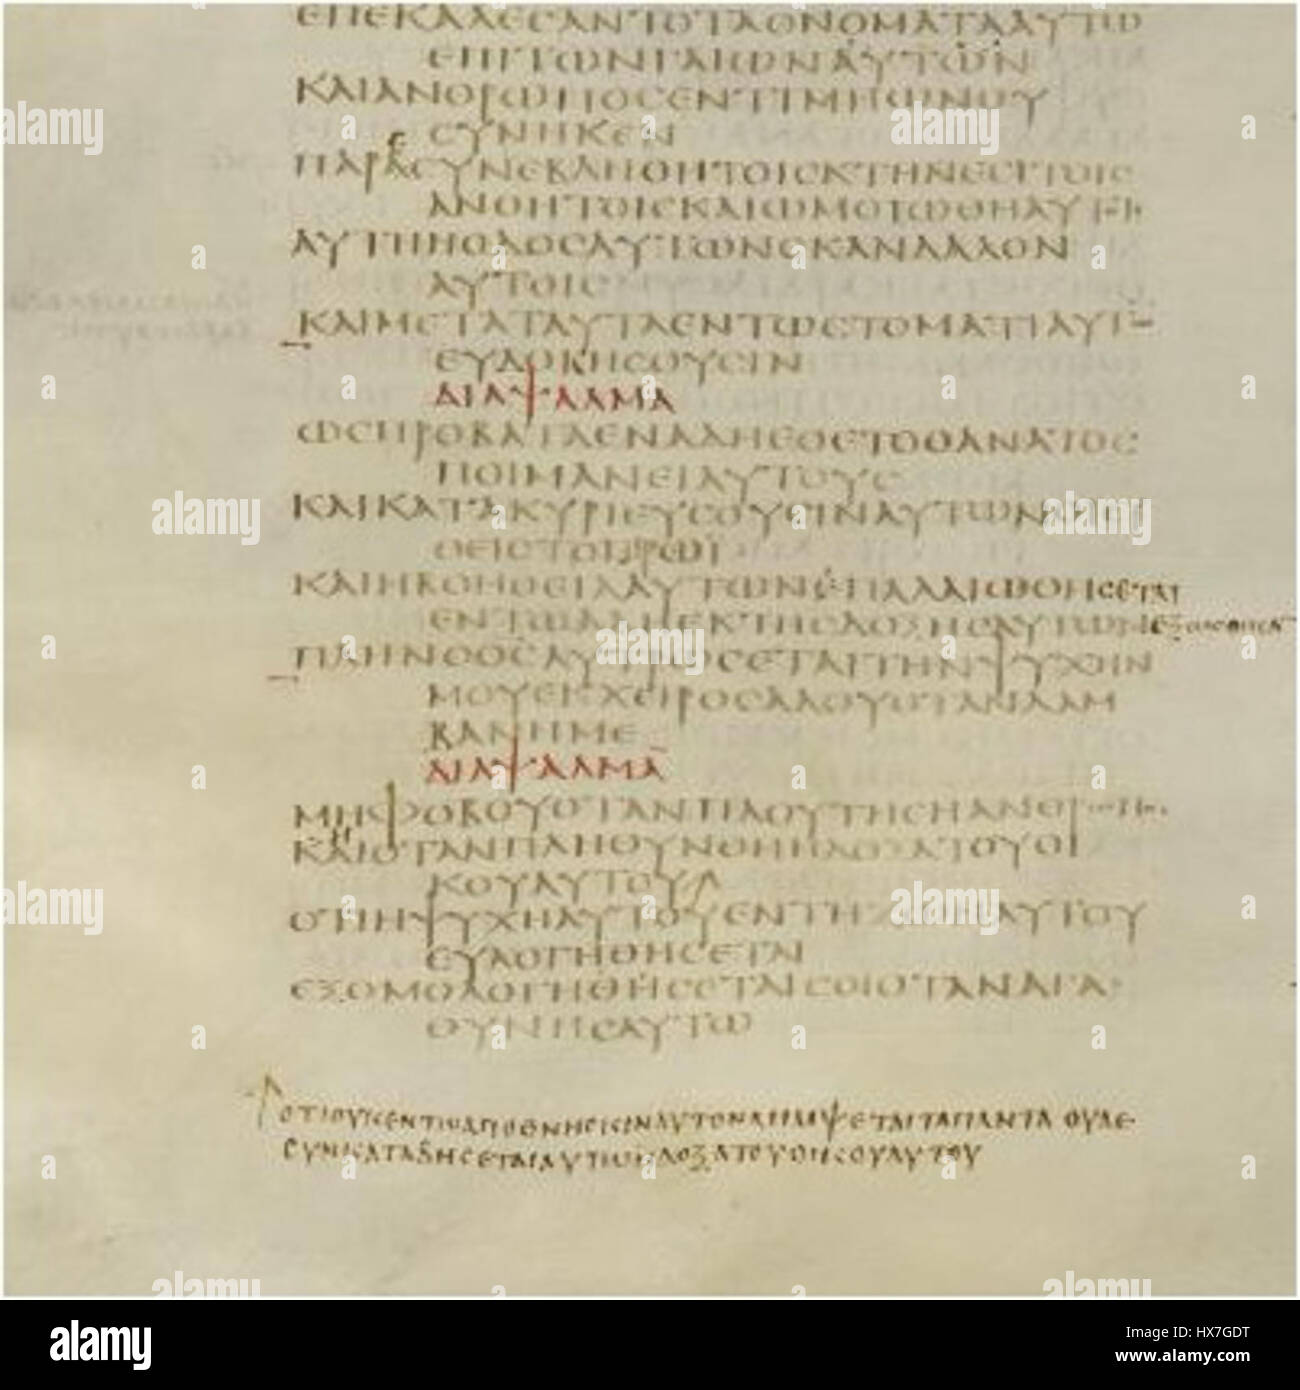 ΕΠΕΚΑΛΕϹΑΝΤΟΤΑΟΝΟΜΑΤΑΑΥΤΩ
ΕΠΙΤΩΝΓΑΙΩΝΑΥΤΩΝ
ΚΑΙΑΝΘΡΩΠΟϹΕΝΤΙΜΗΩΝΟΥ
ϹΥΝΗΚΕΝ
ΠΑΡΑϹΥΝΕΒΛΗΘΗΤΟΙϹΚΤΗΝΕϹΙΤΟΙϹ
ΑΝΟΗΤΟΙϹΚΑΙΩΜΟΙΩΘΗΑΥΤΟΙϹ
ΑΥΤΗΗΟΔΟϹΑΥΤΩΝϹΚΑΝΔΑΛΟΝ
ΑΥΤΟΙϹ
ΚΑΙΜΕΤΑΤΑΥΤΑΕΝΤΩϹΤΟΜΑΤΙΑΥΤΩ
ΕΥΔΟΚΗϹΟΥϹΙΝ
ΔΙΑΨΑΛΜΑ
ΩϹΠΡΟΒΑΤΑΕΝΑΔΗΕΘΕΤΟΘΑΝΑΤΟϹ
ΠΟΙΜΑΝΕΙΑΥΤΟΥϹ
ΚΑΙΚΑΤΑΚΥΡΙΕΥϹΟΥϹΙΝΑΥΤΩΝΟΙΕΥ
ΘΕΙϹΤΟΠΡΩΙ
ΚΑΙΗΒΟΗΘΕΙΑΑΥΤΩΝΠΑΛΑΙΩΘΗϹΕΤΑΙ
ΕΝΤΩΑΔΗΕΚΤΗϹΔΟΞΗϹΑΥΤΩΝ
ΠΛΗΝΟΘϹΛΥΤΡΩϹΕΤΑΙΤΗΝΨΥΧΗΝ
ΜΟΥΕΚΧΕΙΡΟϹΑΔΟΥΟΤΑΝΛΑΜ
ΒΑΝΗΜΕ
ΔΙΑΨΑΛΜΑ
ΜΗΦΟΒΟΥΟΤΑΝΠΛΟΥΤΗϹΗΑΝΘΡΩΠΟϹ
ΚΑΙΟΤΑΝΠΛΗΘΥΝΘΗΗΔΟΞΑΤΟΥΟΙ
ΚΟΥΑΥΤΟΥ
ΟΤΙΗΨΥΧΗΑΥΤΟΥΕΝΤΗΖΩΗΑΥΤΟΥ
ΕΥΛΟΓΗΘΗϹΕΤΑΙ
ΕΞΟΜΟΛΟΓΗϹΕΤΑΙϹΟΙΟΤΑΝΑΓΑ
ΘΥΝΗϹΑΥΤΩ
ΟΤΙΟΥΚΕΝΤΩΑΠΟΘΝΗϹΚΙΝΑΥΤΟΝΛΗΜΨΕΤΑΙΤΑΠΑΝΤΑ ΟΥΔΕ
ϹΥΝΚΑΤΑΒΗϹΕΤΑΙΑΥΤΩΗΔΟΞΑΤΟΥΟΙΚΟΥΑΥΤΟΥ
alamy
Image ID: HX7GDT
www.alamy.com